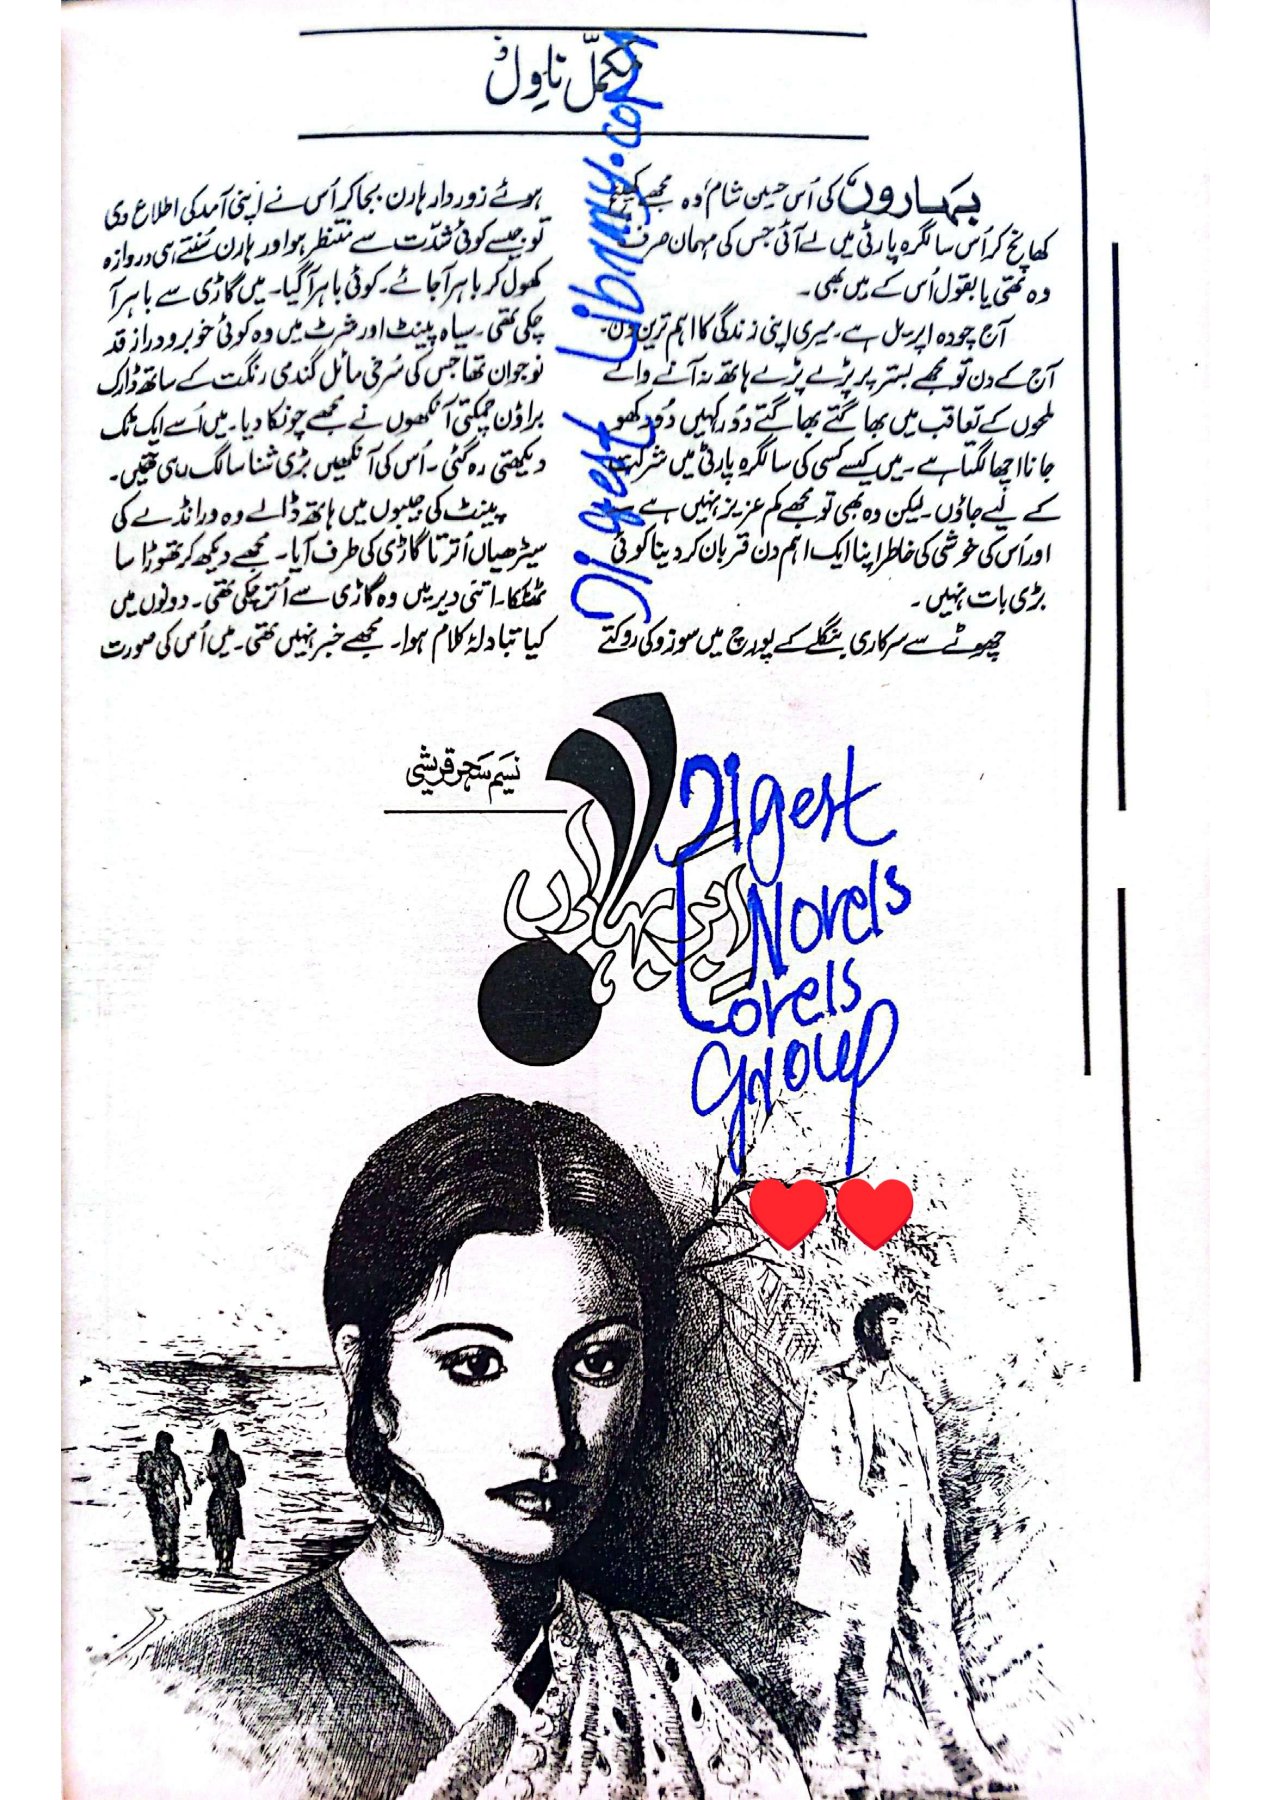 مکمل ناول
بہاروں کی اُس حسین شام وہ مجھے کھینچ
کھانچ کر اُس سالگرہ پارٹی میں لے آئی جس کی مہمان صرف
وہ تھی یا بقول اُس کے میں بھی۔
آج چودہ اپریل ہے۔ میری اپنی زندگی کا اہم ترین دن۔
آج کے دن تو مجھے بستر پر پڑے پڑے ہاتھ نہ آنے والے
لمحوں کے تعاقب میں بھاگتے بھاگتے دُور کہیں دُور کھو
جانا اچھا لگتا ہے۔ میں کیسے کسی کی سالگرہ پارٹی میں شرکت
کے لیے جاؤں۔ لیکن وہ بھی تو مجھے کم عزیز نہیں ہے
اور اُس کی خوشی کی خاطر اپنا ایک اہم دن قربان کر دینا کوئی
بڑی بات نہیں۔
چھوٹے سے سرکاری بنگلے کے پورچ میں سوزوکی روکتے
ہوئے زوردار ہارن بجا کر اُس نے اپنی آمد کی اطلاع دی
تو جیسے کوئی شدّت سے منتظر ہو اور ہارن سُنتے ہی دروازہ
کھول کر باہر آجائے۔ کوئی باہر آگیا۔ میں گاڑی سے باہر آ
چکی تھی۔ سیاہ پینٹ اور شرٹ میں وہ کوئی خوبرو دراز قد
نوجوان تھا جس کی سُرخی مائل گندمی رنگت کے ساتھ ڈارک
براؤن چمکتی آنکھوں نے مجھے چونکا دیا۔ میں اُسے ایک ٹک
دیکھتی رہ گئی۔ اُس کی آنکھیں بڑی شناسا لگ رہی تھیں۔
پینٹ کی جیبوں میں ہاتھ ڈالے وہ ورانڈے کی
سیڑھیاں اُترتا گاڑی کی طرف آیا۔ مجھے دیکھ کر تھوڑا سا
ٹھٹکا۔ اتنی دیر میں وہ گاڑی سے اُتر چکی تھی۔ دونوں میں
کیا تبادلۂ کلام ہوا۔ مجھے خبر نہیں تھی۔ میں اُس کی صورت
Digest Library.com
نسیم سحر قریشی
Digest
Novels
Lovels
group